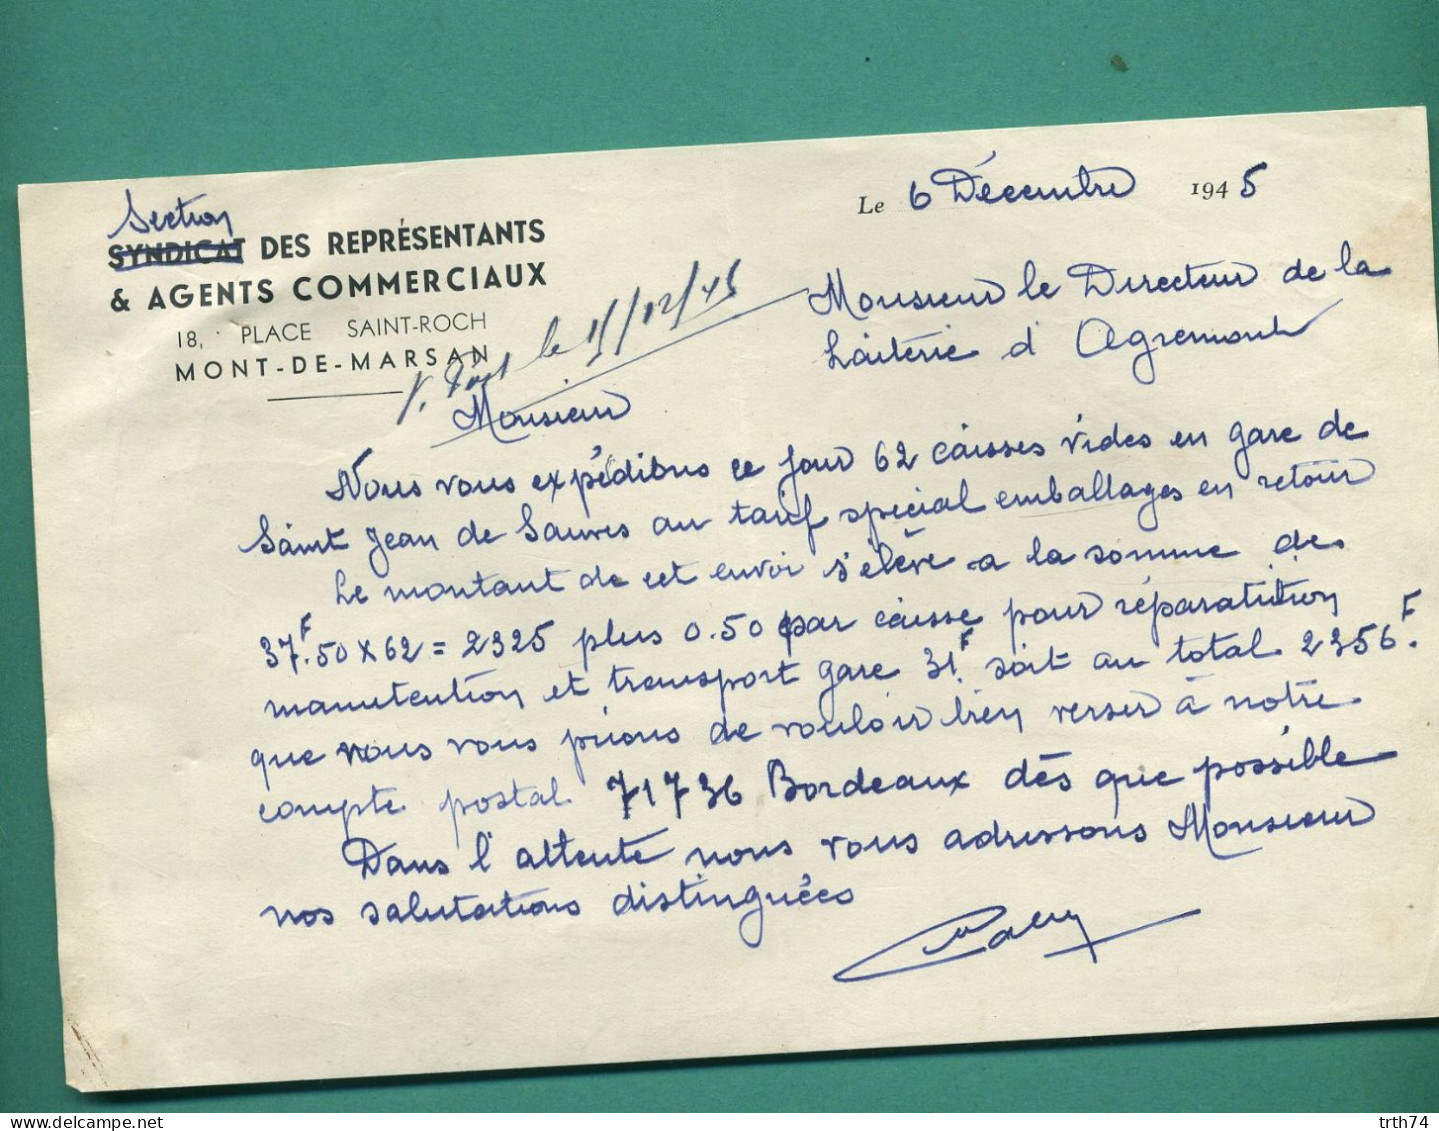 Section
SYNDICAT DES REPRÉSENTANTS
& AGENTS COMMERCIAUX
18, PLACE SAINT-ROCH
MONT-DE-MARSAN
Le 6 Décembre 1945
Monsieur le Directeur de la
Laiterie d'Agremont
le 11/12/45
Monsieur
Nous vous expédions ce jour 62 caisses vides en gare de
Saint Jean de Sauves au tarif spécial emballages en retour
Le montant de cet envoi s'elève a la somme de
37F.50 x 62 = 2325 plus 0.50 par caisse pour réparatition
manutention et transport gare 31F. soit au total 2356F.
que nous vous prions de vouloir bien verser à notre
compte postal 71736 Bordeaux dès que possible
Dans l'attente nous vous adressons Monsieur
nos salutations distinguées
trth74